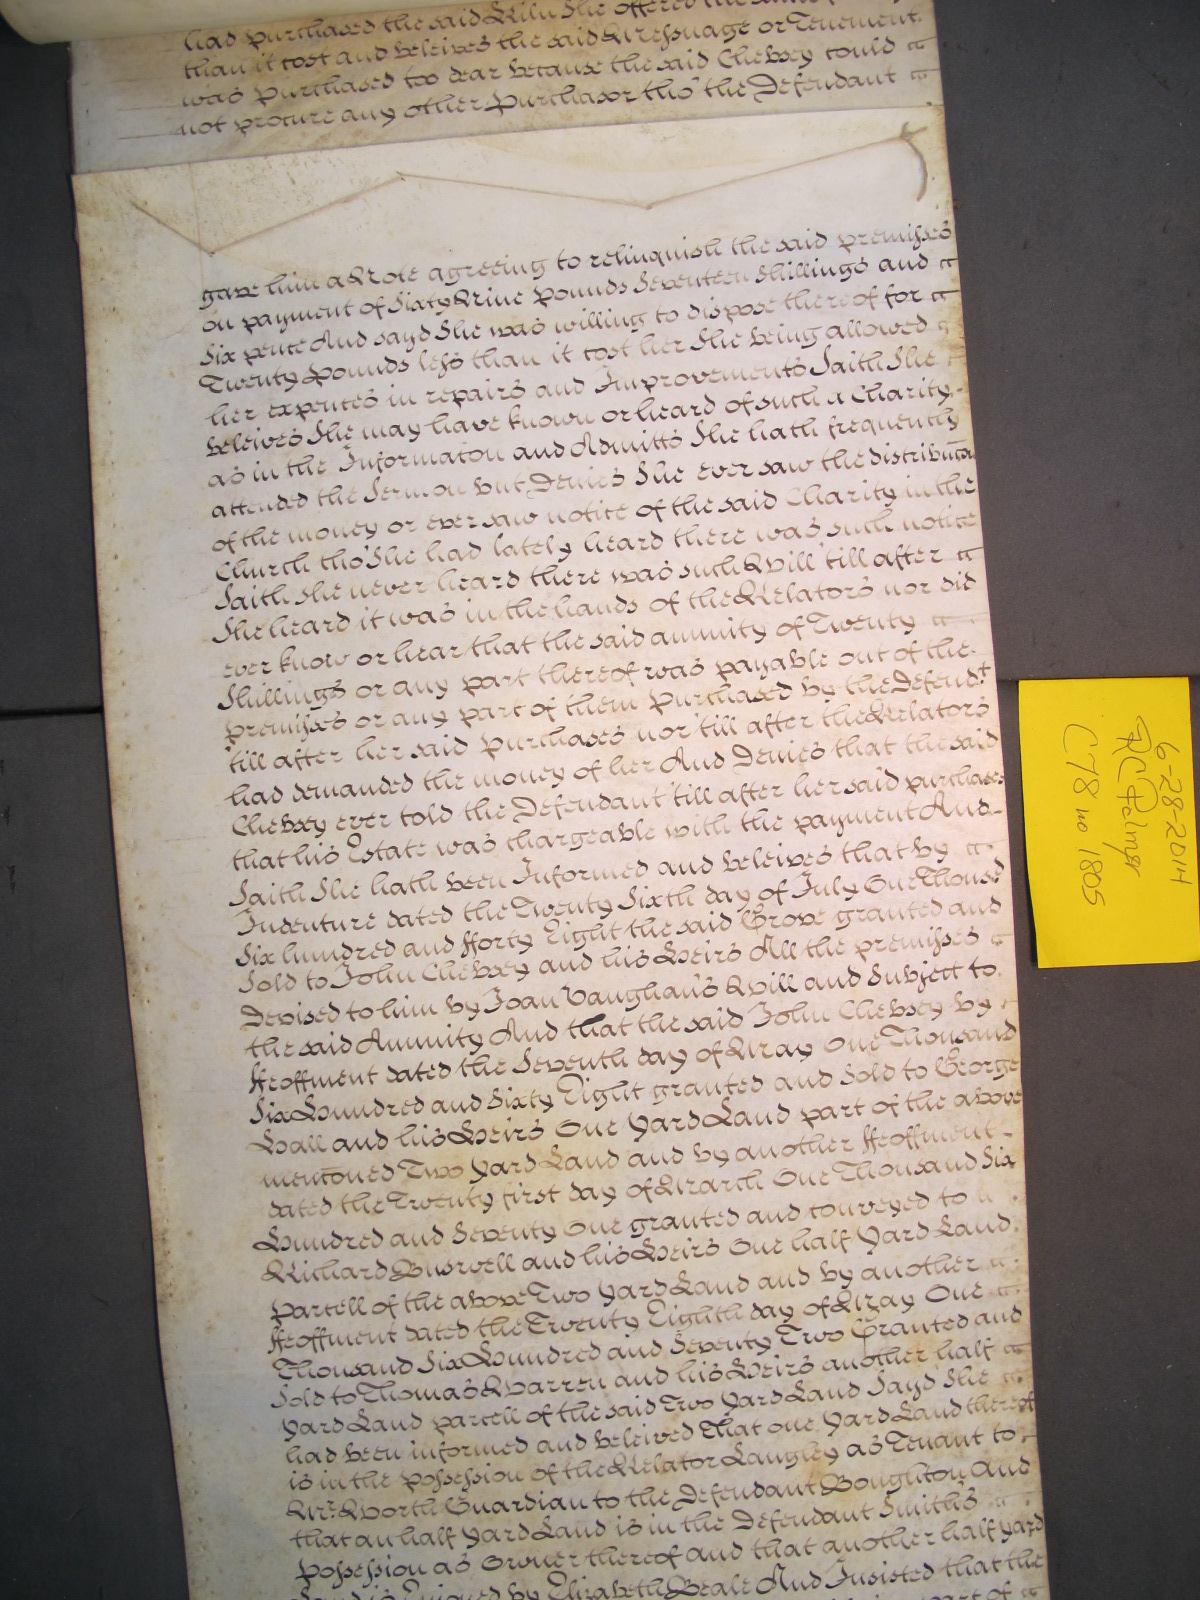 had purchased the said Kiln She offered the same
than it cost and beleives the said Messuage or Tenement
was Purchased too dear because the said Chebsey could
not procure any other Purchasor tho' the Defendant
gave him a Note agreeing to relinquish the said premisses
on payment of Sixty Nine Pounds Seventeen Shillings and
Six pence And sayd She was willing to dispose thereof for
Twenty Pounds less than it cost her She being allowed
her expences in repairs and Improvements Saith She
beleives She may have known or heard of such a Charity
as in the Informacon and Admitts She hath frequently
attended the Sermon but Denies She ever saw the distribucon
of the money or ever saw notice of the said Charity in the
Church tho' She had lately heard there was such notice
Saith She never heard there was such Will 'till after
She heard it was in the hands of the Relators nor did
ever know or hear that the said annuity of Twenty
Shillings or any part thereof was payable out of the
premisses or any part of them Purchased by the Defend.t
'till after her said Purchases nor 'till after the Relators
had demanded the money of her And Denies that the said
Chebsey ever told the Defendant 'till after her said purchases
that his Estate was chargeable with the payment And
Saith She hath been Informed and beleives that by
Indenture dated the Twenty Sixth day of July One Thousd
Six hundred and fforty Eight the said Grove granted and
Sold to John Chebsey and his Heirs All the premisses
Devised to him by Joan Vaughan's Will and Subject to
the said Annuity And that the said John Chebsey by
ffeoffment dated the Seventh day of May One Thousand
Six Hundred and Sixty Eight granted and Sold to George
Hall and his Heirs One Yard Land part of the above
mentoned Two Yard Land and by another ffeoffment
dated the Twenty first day of March One Thousand Six
Hundred and Seventy One granted and conveyed to
Richard Burwell and his Heirs One half Yard Land
Parcell of the above Two Yard Land and by another
ffeoffment dated the Twenty Eighth day of May One
Thousand Six Hundred and Seventy Two Granted and
Sold to Thomas Warren and his Heirs another half
Yard Land parcell of the said Two Yard Land Sayd She
had been informed and beleived That one Yard Land thereof
is in the Possession of the Relator Langley as Tenant to
Mr. Worth Guardian to the Defendant Boughton And
that an half Yard Land is in the Defendant Smith's
Possession as Owner thereof and that another half Yard
Land is Enjoyed by Elizabeth Beale And Insisted that the
part of
6-28-2014
RCPelmgr
C78 no 1805